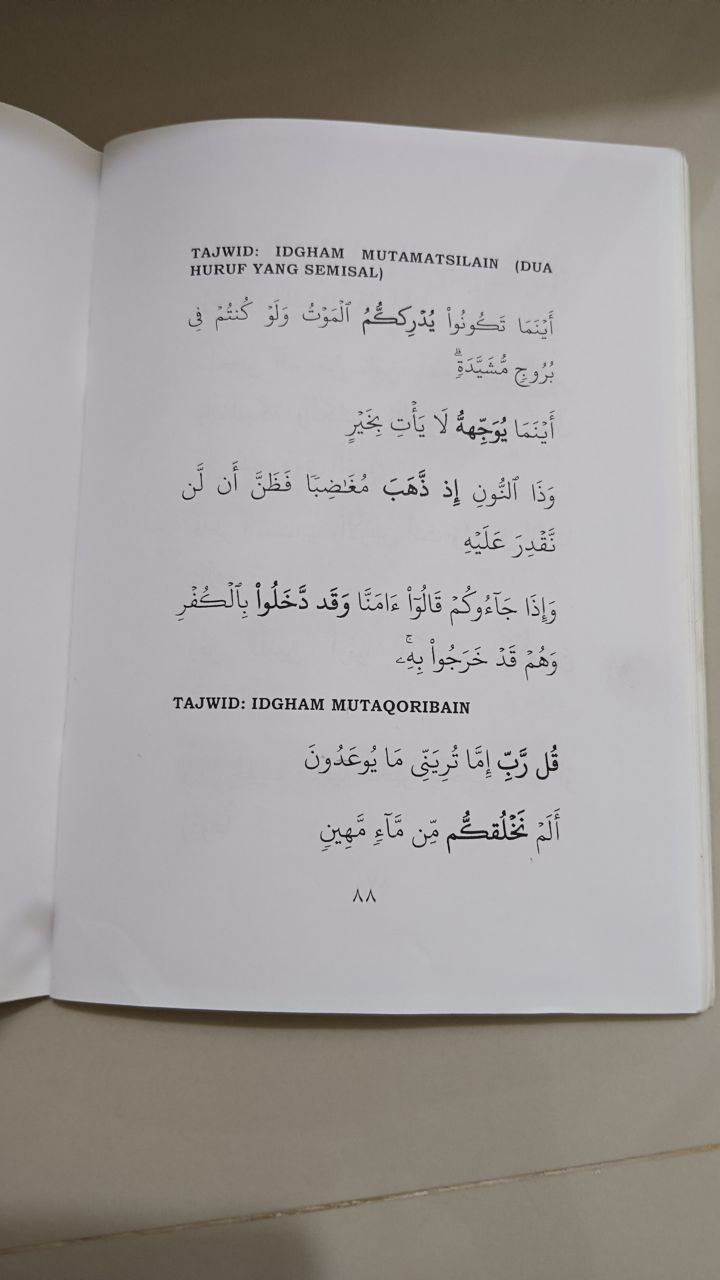 TAJWID: IDGHAM MUTAMATSILAIN (DUA
HURUF YANG SEMISAL)
أَيۡنَمَا تَكُونُواْ يُدۡرِككُّمُ ٱلۡمَوۡتُ وَلَوۡ كُنتُمۡ فِي
بُرُوجٖ مُّشَيَّدَةٖۗ
أَيۡنَمَا يُوَجِّههُّ لَا يَأۡتِ بِخَيۡرٍ
وَذَا ٱلنُّونِ إِذ ذَّهَبَ مُغَٰضِبٗا فَظَنَّ أَن لَّن
نَّقۡدِرَ عَلَيۡهِ
وَإِذَا جَآءُوكُمۡ قَالُوٓاْ ءَامَنَّا وَقَد دَّخَلُواْ بِٱلۡكُفۡرِ
وَهُمۡ قَدۡ خَرَجُواْ بِهِۦۚ
TAJWID: IDGHAM MUTAQORIBAIN
قُل رَّبِّ إِمَّا تُرِيَنِّي مَا يُوعَدُونَ
أَلَمۡ نَخۡلُقكُّم مِّن مَّآءٖ مَّهِينٖ
٨٨